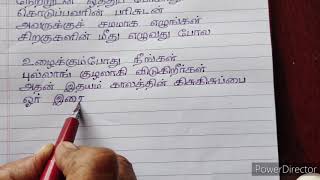 கொடுப்பவரின் பரிசுடன்
அவருக்குச் சமமாக எழுங்கள்
சிறகுகளின் மீது எழுவது போல
உழைக்கும்போது நீங்கள்
புல்லாங் குழலாகி விடுகிறீர்கள்
அதன் இதயம் காலத்தின் கிசுகிசுப்பை
ஓர் இரை
PowerDirector